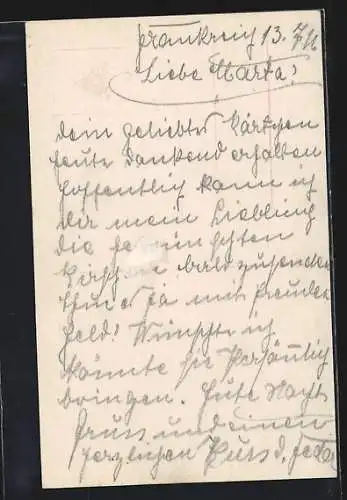 Frankreich 13. 7/16
Liebe Marta!
Dein geliebtes Kärtchen
heute dankend erhalten
hoffentlich kann ich
dir mein Liebling
die
bald zusenden
Thue es ja mit Freuden
Wünschte ich
könnte sie persönlich
bringen. Gute Nacht
Gruss und einen
herzlichen Kuss d.